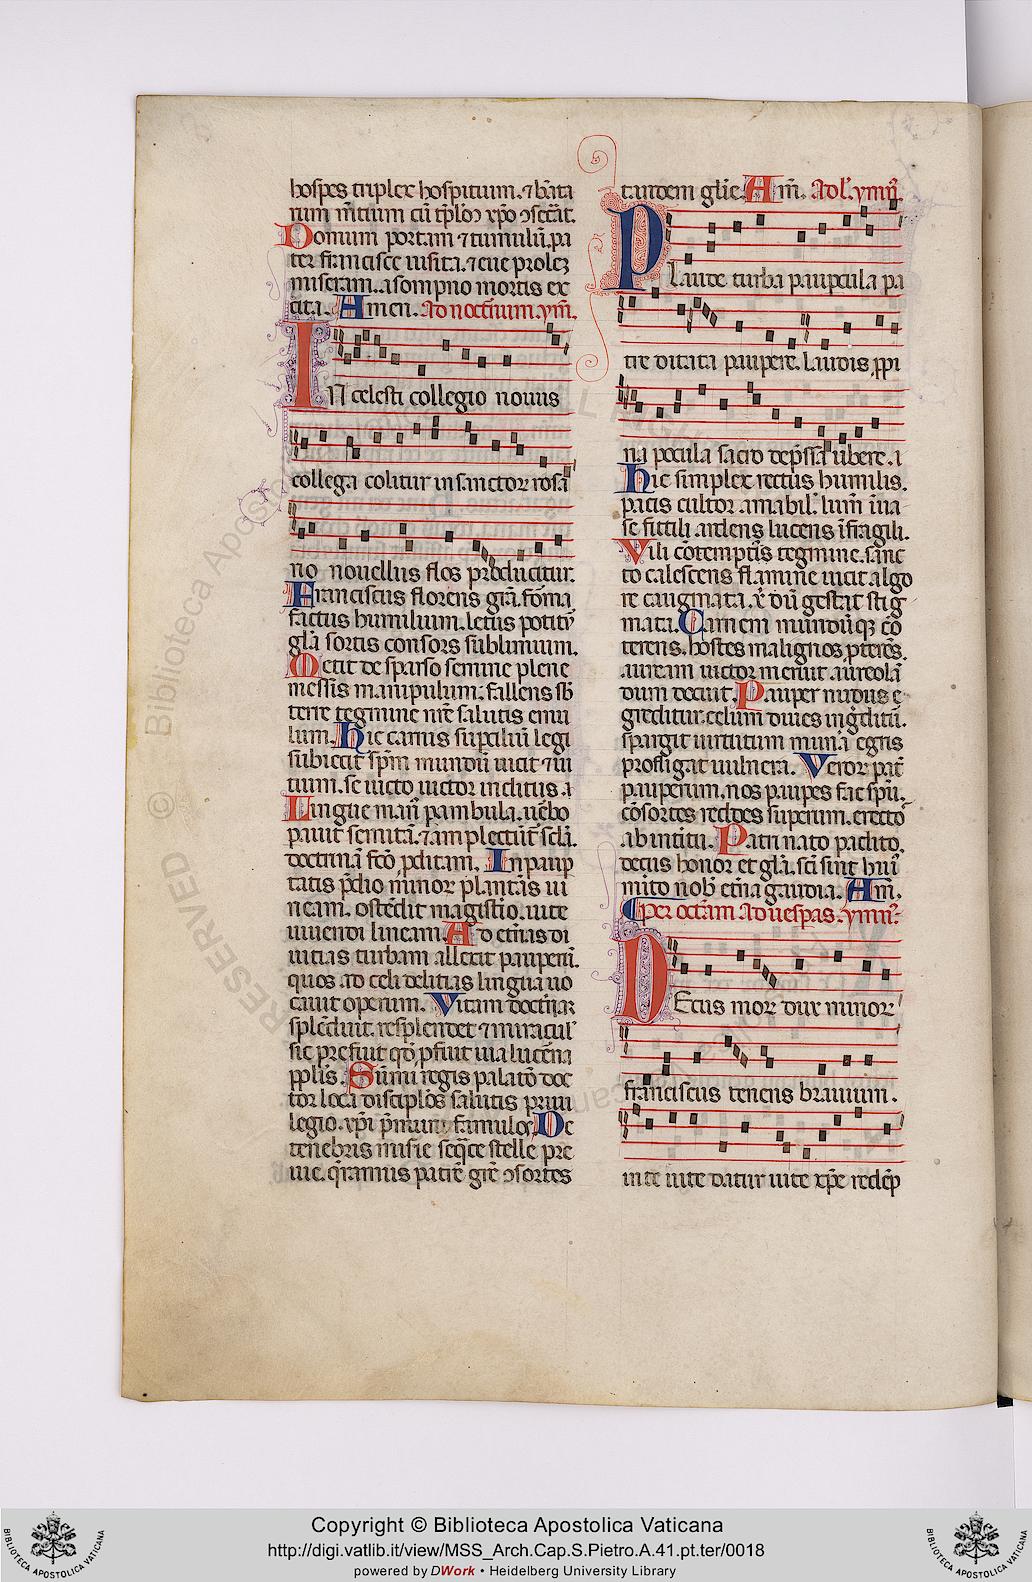 hospes triplex hospitium. ⁊ bt̄a ta
rum mentium cū tp̄loꝝ xp̄o ↄsecrat.
Domum portam ⁊ tumulū. pa
ter francisce uisita. ⁊ eue prolez
miseram. a sompno mortis ex
cita. Amen. Ad nocturnum. ym̄.
IN celesti collegio nouus
collega colitur in sanctor rosa
rio nouellus flos producitur.
Franciscus florens gr̄a. foͬma
factus humilium. letus potitͬ
gl̄a sortis consors sublimium.
Metit de sparso semine plene
messis manipulum. fallens sb̄
terre tegmine nr̄e salutis emu
lum. Hic carnis supciliū legi
subiecit sp̄m mundū uicit ⁊ ui
tium. se uicto uictor inclitus. a
Lingue manū pambula. ūbo
pauit semitā. ⁊ amplectūt sclā.
doctrinā fc̄o pditam. In paup
tatis p̄dio minor plantās ui
neam. ostēdit magistio. uite
uiuendi lineam. Ad etn̄as di
uitias turbam allexit paupem̄.
quos ad celi delitias lingua uo
cauit operum. Vitam doctrinaꝝ
splēduit. resplendet ⁊ miraculꝭ
sic prefuit qd̄ pfuit uia lucena
pplis. Sūmi regis palatō doc
tor locā discip̄los salutis priui
legio. xp̄i pmauit famulos. De
tenebris misie seq̄te stelle pre
uie. q̄ramus patrie gr̄e ↄsortes
tandem glīe. Am̄. Ad l'. ymn̄.
Plaude turba paupcula pa
tre ditata paupere. laudis ppi
na pocula sacro depssa ubere. a
Hic simplex rectus humilis.
pacis cultor amabil'. lum̄ ī ua
se fictili. ardens lucens ī fragili.
Vili cōtemptꝰ tegmine. sanc
to calescens flamine uicit algo
re caugmata. x̄ dū gestat stig
mata. Carnem mundūqꝫ cō
terens. hostes malignos pterēs.
auream uictor meruit aureolā
dum docuit. Pauper nudus e
greditur. celum diues ingditū.
spargit uirtutum mun̄a egris
profligat uulnera. Vetor pat̄
pauperum. nos paupes fac spū.
cōsortes reddes superum. erecto
ab intitu. Patri nato paclito.
decus honor et gl̄a. sci sint huiꝰ
mito nob̄ etn̄a gaudia. Am̄.
Per octām ad uespas. ymn̄ꝰ
DEcus moꝝ dux minoꝝ
franciscus tenens brauium.
in te uite datur uite xp̄e redēp
Copyright © Biblioteca Apostolica Vaticana
http://digi.vatlib.it/view/MSS_Arch.Cap.S.Pietro.A.41.pt.ter/0018
powered by DWork • Heidelberg University Library